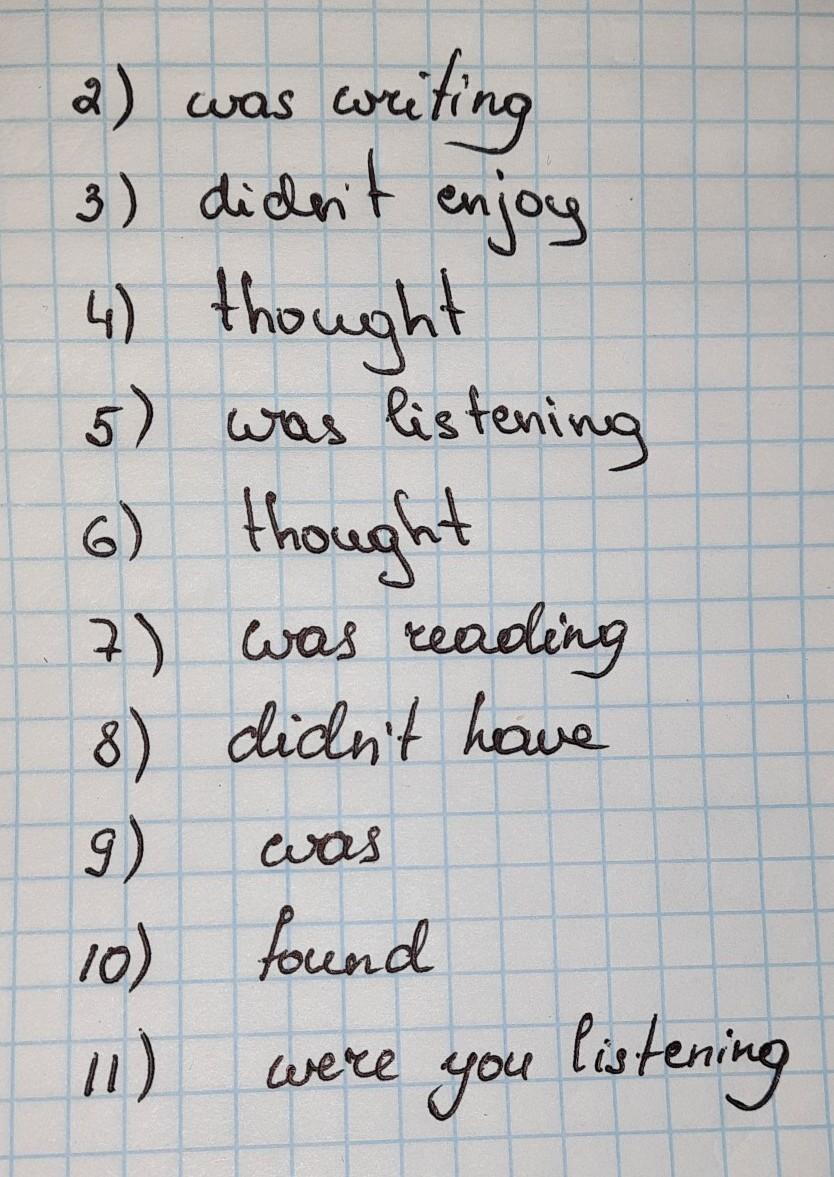 2) was writing
3) didn't enjoy
4) thought
5) was listening
6) thought
7) was reading
8) didn't have
9) was
10) found
11) were you listening